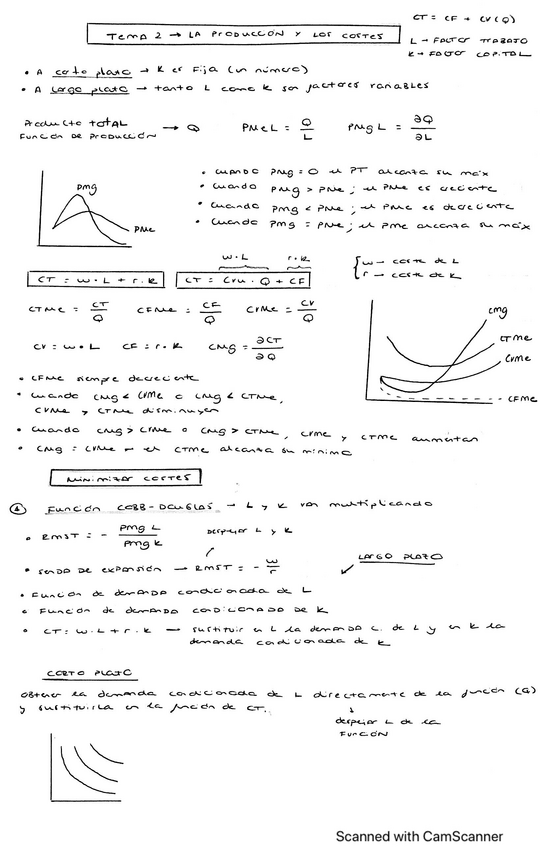 CT = CF + CV(Q)
TEMA 2 → LA PRODUCCIÓN Y LOS COSTES
L → FACTOR TRABAJO
K → FACTOR CAPITAL
• A corto plazo → K es Fija (un número)
• A largo plazo → tanto L como K son factores variables
PRODUCTO TOTAL
FUNCIÓN DE PRODUCCIÓN → Q PMeL = Q/L PMgL = ∂Q/∂L
• cuando PMg = 0 el PT alcanza su máx
• cuando PMg > PMe ; el PMe es creciente
• cuando PMg < PMe ; el PMe es decreciente
• cuando PMg = PMe ; el PMe alcanza su máx
PMg
PMe
w·L r·K
CT = w·L + r·K CT = CVu · Q + CF
{ w → coste de L
r → coste de K
CTMe = CT/Q CFMe = CF/Q CVMe = CV/Q
CV = w·L CF = r·K CMg = ∂CT/∂Q
CMg
CTMe
CVMe
CFMe
• CFMe siempre decreciente
• cuando CMg < CVMe o CMg < CTMe,
CVMe y CTMe disminuyen
• cuando CMg > CVMe o CMg > CTMe, CVMe y CTMe aumentan
• CMg = CVMe el CTMe alcanza su mínimo
MINIMIZAR COSTES
① FUNCIÓN COBB-DOUGLAS → L y K van multiplicando
• RMST = - PMgL/PMgK
despejar L y K
• SENDA DE EXPANSIÓN → RMST = - w/r
LARGO PLAZO
• FUNCIÓN DE DEMANDA CONDICIONADA DE L
• FUNCIÓN DE DEMANDA CONDICIONADA DE K
• CT = w·L + r·K → sustituir en L la demanda c. de L y en K la
demanda condicionada de K
CORTO PLAZO
obtener la demanda condicionada de L directamente de la función (Q)
y sustituirla en la función de CT.
↓
despejar L de la
FUNCIÓN
Scanned with CamScanner